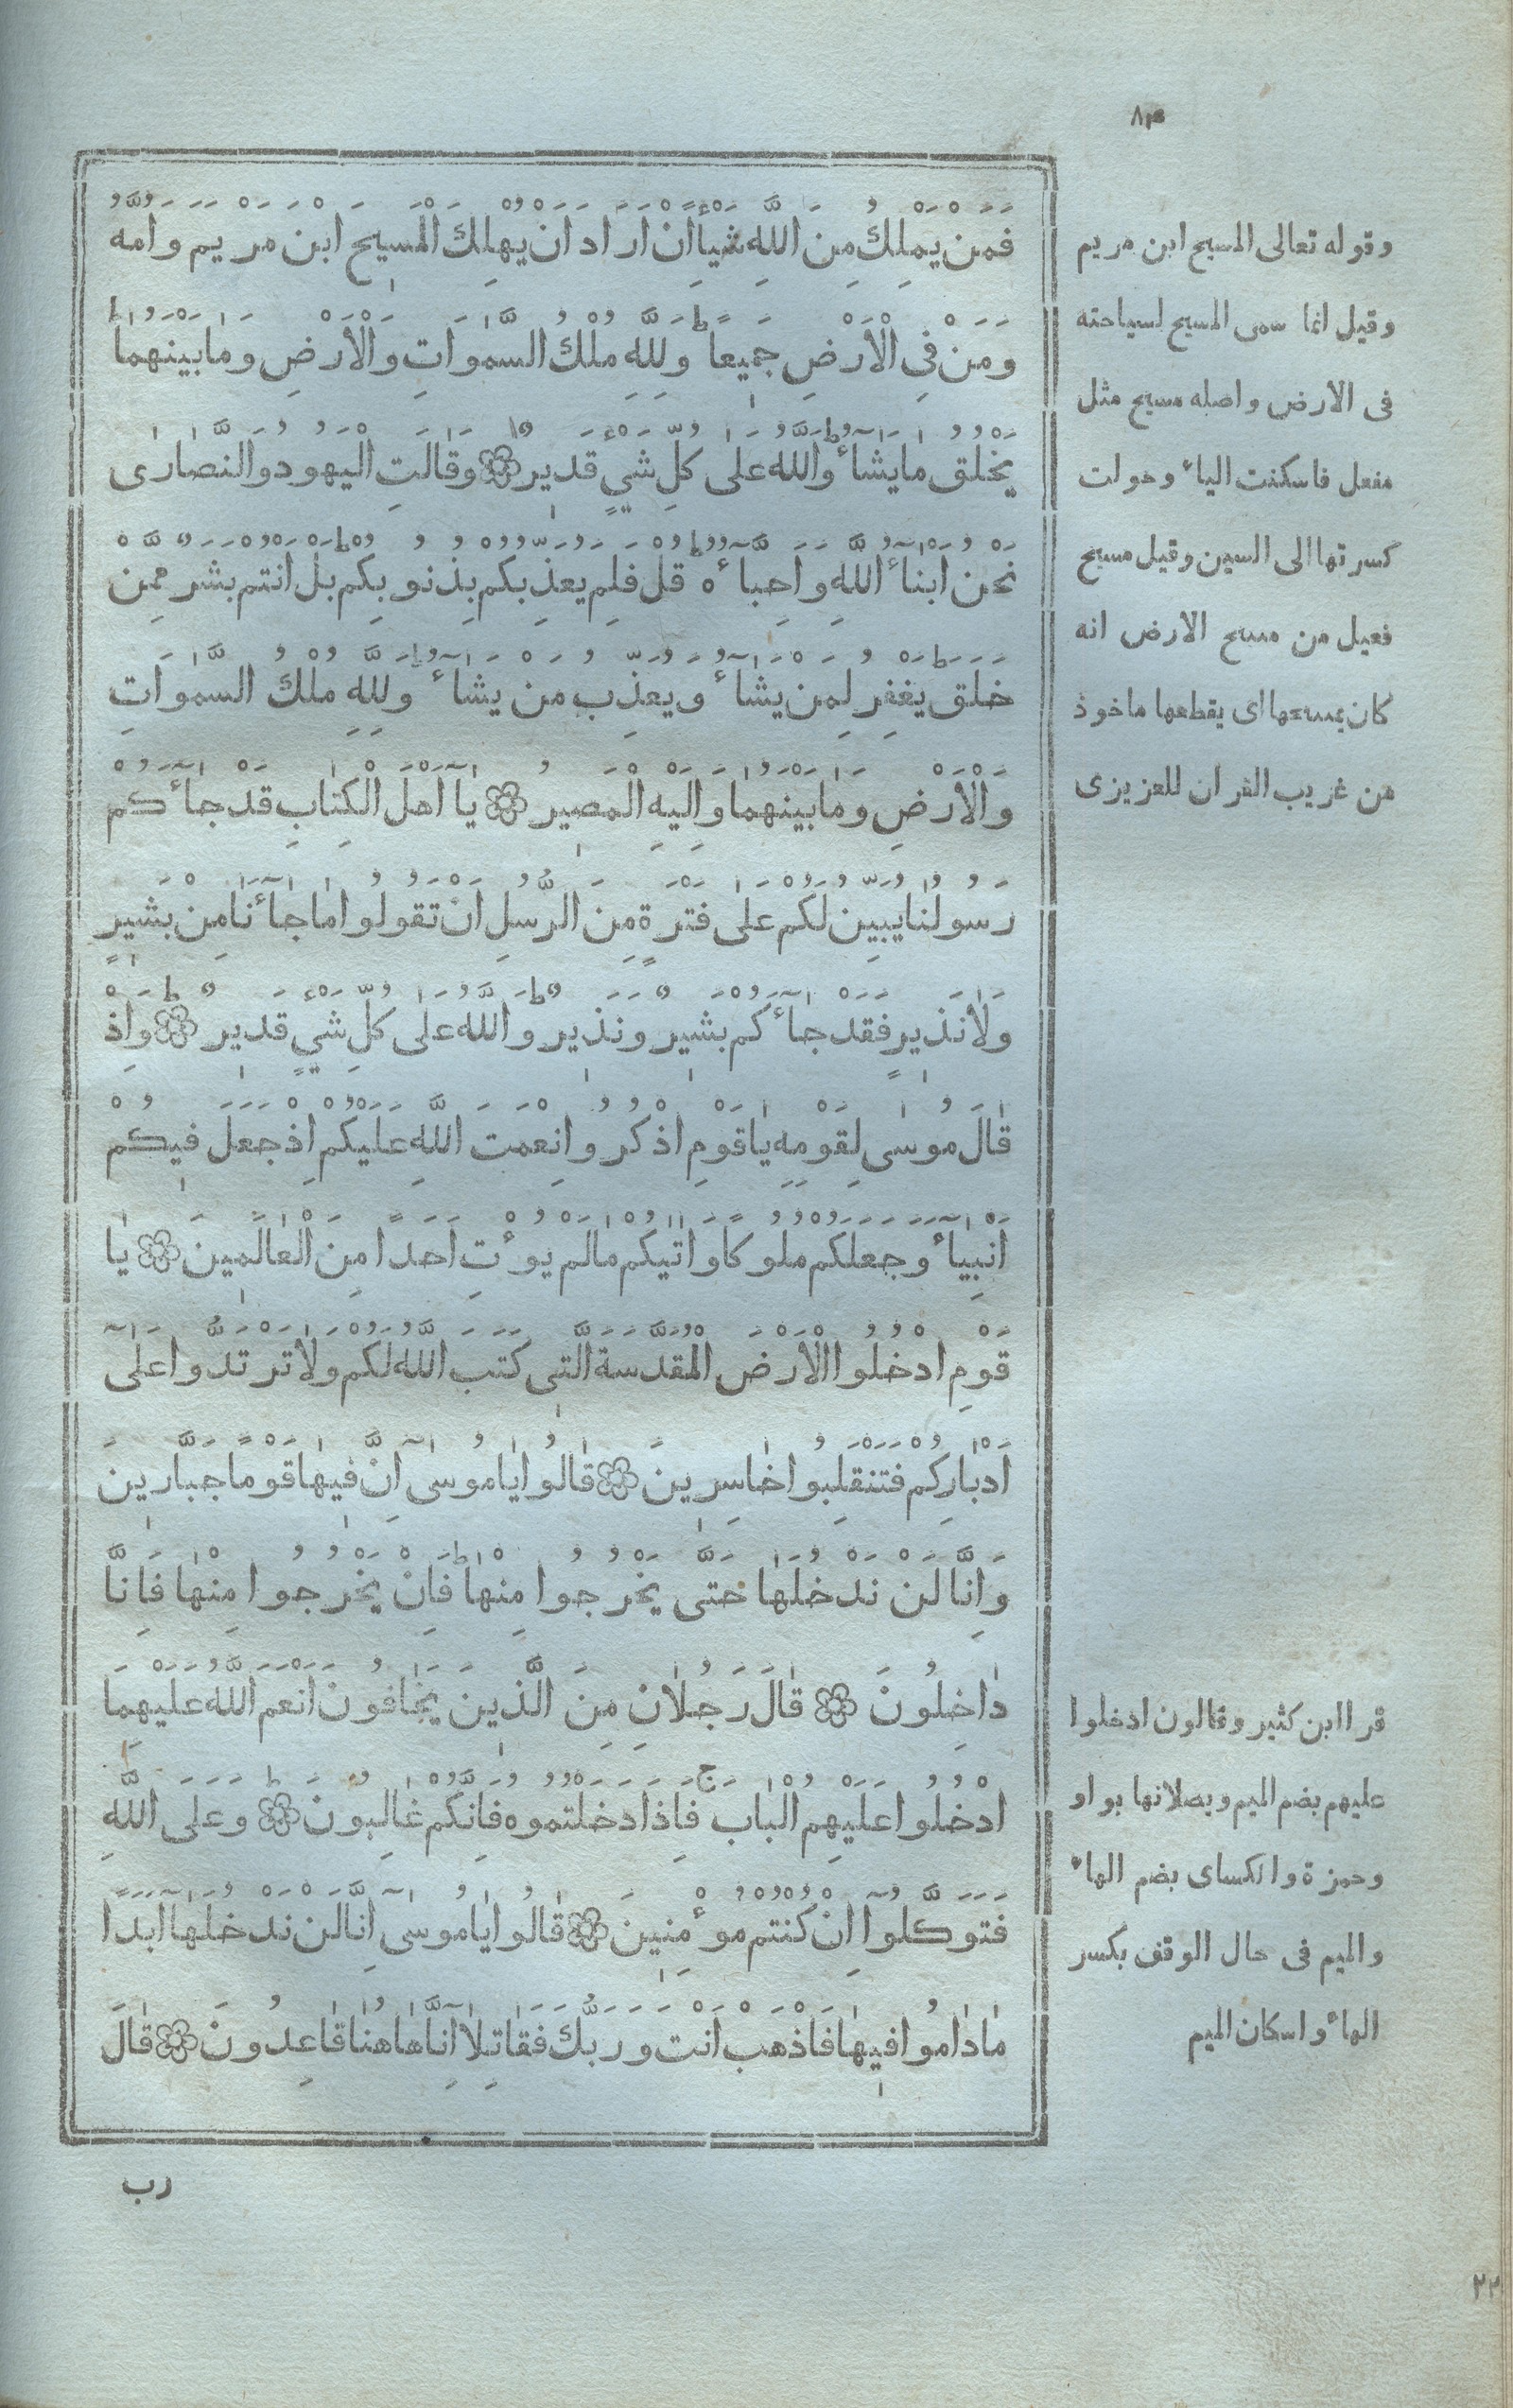 فَمَنْ يَمْلِكُ مِنَ اللَّهِ شَيْأً اِنْ اَرَادَ اَنْ يُهْلِكَ الْمَسِيحَ ابْنَ مَرْيَمَ وَاُمَّهُ
وَمَنْ فِى الْاَرْضِ جَمِيعًا ط وَلِلَّهِ مُلْكُ السَّمٰوَاتِ وَالْاَرْضِ وَمَا بَيْنَهُمَا ط
يَخْلُقُ مَا يَشَآءُ ط وَاللَّهُ عَلٰى كُلِّ شَيْءٍ قَدِيرٌ وَقَالَتِ الْيَهُودُ وَالنَّصَارٰى
نَحْنُ اَبْنَآءُ اللَّهِ وَاَحِبَّآءُهُ ط قُلْ فَلِمَ يُعَذِّبُكُمْ بِذُنُوبِكُمْ ط بَلْ اَنْتُمْ بَشَرٌ مِمَّنْ
خَلَقَ ط يَغْفِرُ لِمَنْ يَشَآءُ وَيُعَذِّبُ مَنْ يَشَآءُ ط وَلِلَّهِ مُلْكُ السَّمٰوَاتِ
وَالْاَرْضِ وَمَا بَيْنَهُمَا وَاِلَيْهِ الْمَصِيرُ يَا اَهْلَ الْكِتَابِ قَدْ جَآءَكُمْ
رَسُولُنَا يُبَيِّنُ لَكُمْ عَلٰى فَتْرَةٍ مِنَ الرُّسُلِ اَنْ تَقُولُوا مَا جَآءَنَا مِنْ بَشِيرٍ
وَلَا نَذِيرٍ فَقَدْ جَآءَكُمْ بَشِيرٌ وَنَذِيرٌ ط وَاللَّهُ عَلٰى كُلِّ شَيْءٍ قَدِيرٌ وَاِذْ
قَالَ مُوسٰى لِقَوْمِهِ يَا قَوْمِ اذْكُرُوا نِعْمَتَ اللَّهِ عَلَيْكُمْ اِذْ جَعَلَ فِيكُمْ
اَنْبِيَآءَ وَجَعَلَكُمْ مُلُوكًا وَاٰتٰيكُمْ مَا لَمْ يُوءْتِ اَحَدًا مِنَ الْعَالَمِينَ يَا
قَوْمِ ادْخُلُوا الْاَرْضَ الْمُقَدَّسَةَ الَّتِى كَتَبَ اللَّهُ لَكُمْ وَلَا تَرْتَدُّوا عَلٰى
اَدْبَارِكُمْ فَتَنْقَلِبُوا خَاسِرِينَ قَالُوا يَا مُوسٰى اِنَّ فِيهَا قَوْمًا جَبَّارِينَ
وَاِنَّا لَنْ نَدْخُلَهَا حَتّٰى يَخْرُجُوا مِنْهَا ط فَاِنْ يَخْرُجُوا مِنْهَا فَاِنَّا
دَاخِلُونَ قَالَ رَجُلَانِ مِنَ الَّذِينَ يَخَافُونَ اَنْعَمَ اللَّهُ عَلَيْهِمَا
ادْخُلُوا عَلَيْهِمُ الْبَابَ ج فَاِذَا دَخَلْتُمُوهُ فَاِنَّكُمْ غَالِبُونَ وَعَلَى اللَّهِ
فَتَوَكَّلُوا اِنْ كُنْتُمْ مُوءْمِنِينَ قَالُوا يَا مُوسٰى اِنَّا لَنْ نَدْخُلَهَا اَبَدًا
مَا دَامُوا فِيهَا فَاذْهَبْ اَنْتَ وَرَبُّكَ فَقَاتِلَا اِنَّا هَاهُنَا قَاعِدُونَ قَالَ
رب
وقوله تعالى المسيح ابن مريم
وقيل انما سمى المسيح لسياحته
فى الارض واصله مسيح مثل
مفعل فاسكنت الياء وحولت
كسرتها الى السين وقيل مسيح
فعيل من مسح الارض انه
كان يمسحها اى يقطعها ماخوذ
من غريب القران للعزيزى
قرا ابن كثير وقالون ادخلوا
عليهم بضم الميم وبصلانها بواو
وحمزة والكساى بضم الهاء
والميم فى حال الوقف بكسر
الهاء واسكان الميم
٢٢